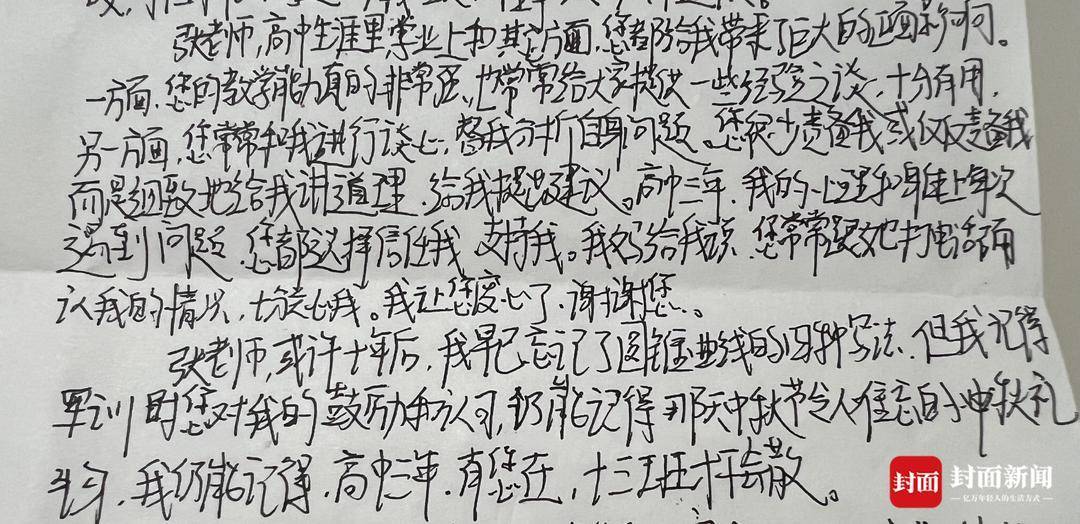 张老师，高中生涯里，学业上和其它方面，您都给我带来了巨大的正面影响。
一方面，您的教学能力真的非常强，也常常给大家提供一些经验之谈，十分有用，
另一方面，您常常和我进行谈心，帮我分析自身问题。您很少责备我或仅仅责备我
而是细致地给我讲道理，给我提出建议。高中三年，我的心理和身体上每次
遇到问题，您都选择信任我，支持我。我妈给我说，您常常跟她打电话确
认我的情况，十分关心我。我让您废心了，谢谢您。
张老师，或许十年后，我早已忘记了圆锥曲线的四种写法，但我记得
军训时您对我的鼓励和认可，仍能记得那天中秋节令人难忘的小中秋礼
物，我仍能记得，高中三年，有您在，十三班才不会散。
封面 封面新闻
亿万年轻人的生活方式